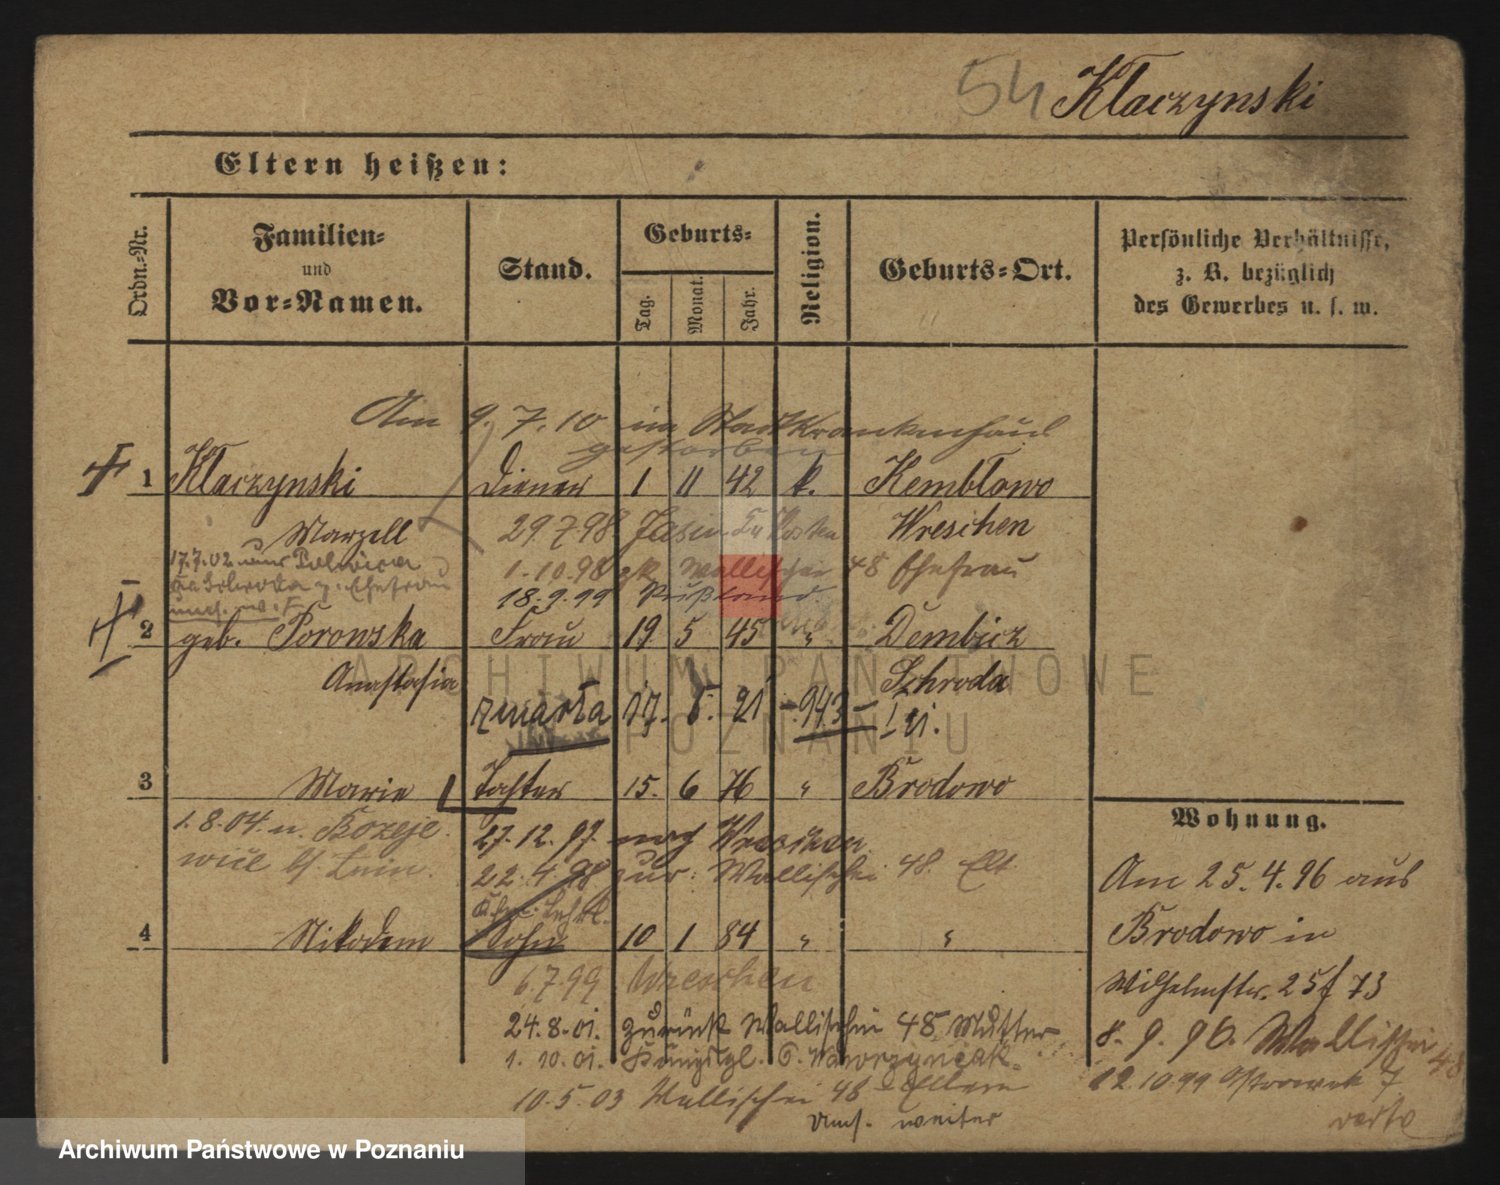 54 Kłaczynski
Eltern heißen:
Ordn.-Nr.
Familien-
und
Vor-Namen.
Stand.
Geburts-
Tag.
Monat.
Jahr.
Religion.
Geburts-Ort.
Persönliche Verhältnisse,
z. B. bezüglich
des Gewerbes u. s. w.
Am 9.7.10 im Stadtkrankenhaus
gestorben
1 Kłaczynski Diener 1 11 42 k. Kembłowo
Marzell 29.7.98 Wreschen
17.7.02
1.10.98 zk. Wallischei 48 Ehefrau
18.9.99 Rußland
2 geb. Porowska Frau 19 5 45 " Dembicz
Anastasia Schroda
zmarła 17. 8. 21 - 943 -
3 Marie Tochter 15. 6 76 " Brodowo
1.8.04. n.
27.12.97. nach Wreschen
22.4.98 zur: Wallischei 48. Elt
4 Nikodem Sohn 10 1 84 " "
6.7.99 Wreschen
24.8.01. zurück Wallischei 48 Mutter
1.10.01.
10.5.03 Wallischei 48 Eltern
Umf. weiter
Wohnung.
Am 25.4.96 aus
Brodowo in
Wilhelmstr. 25 f 73
8.9.96. Wallischei 48
12.10.99 Ostrowek 7
verte
ARCHIWUM PAŃSTWOWE
W POZNANIU
Archiwum Państwowe w Poznaniu